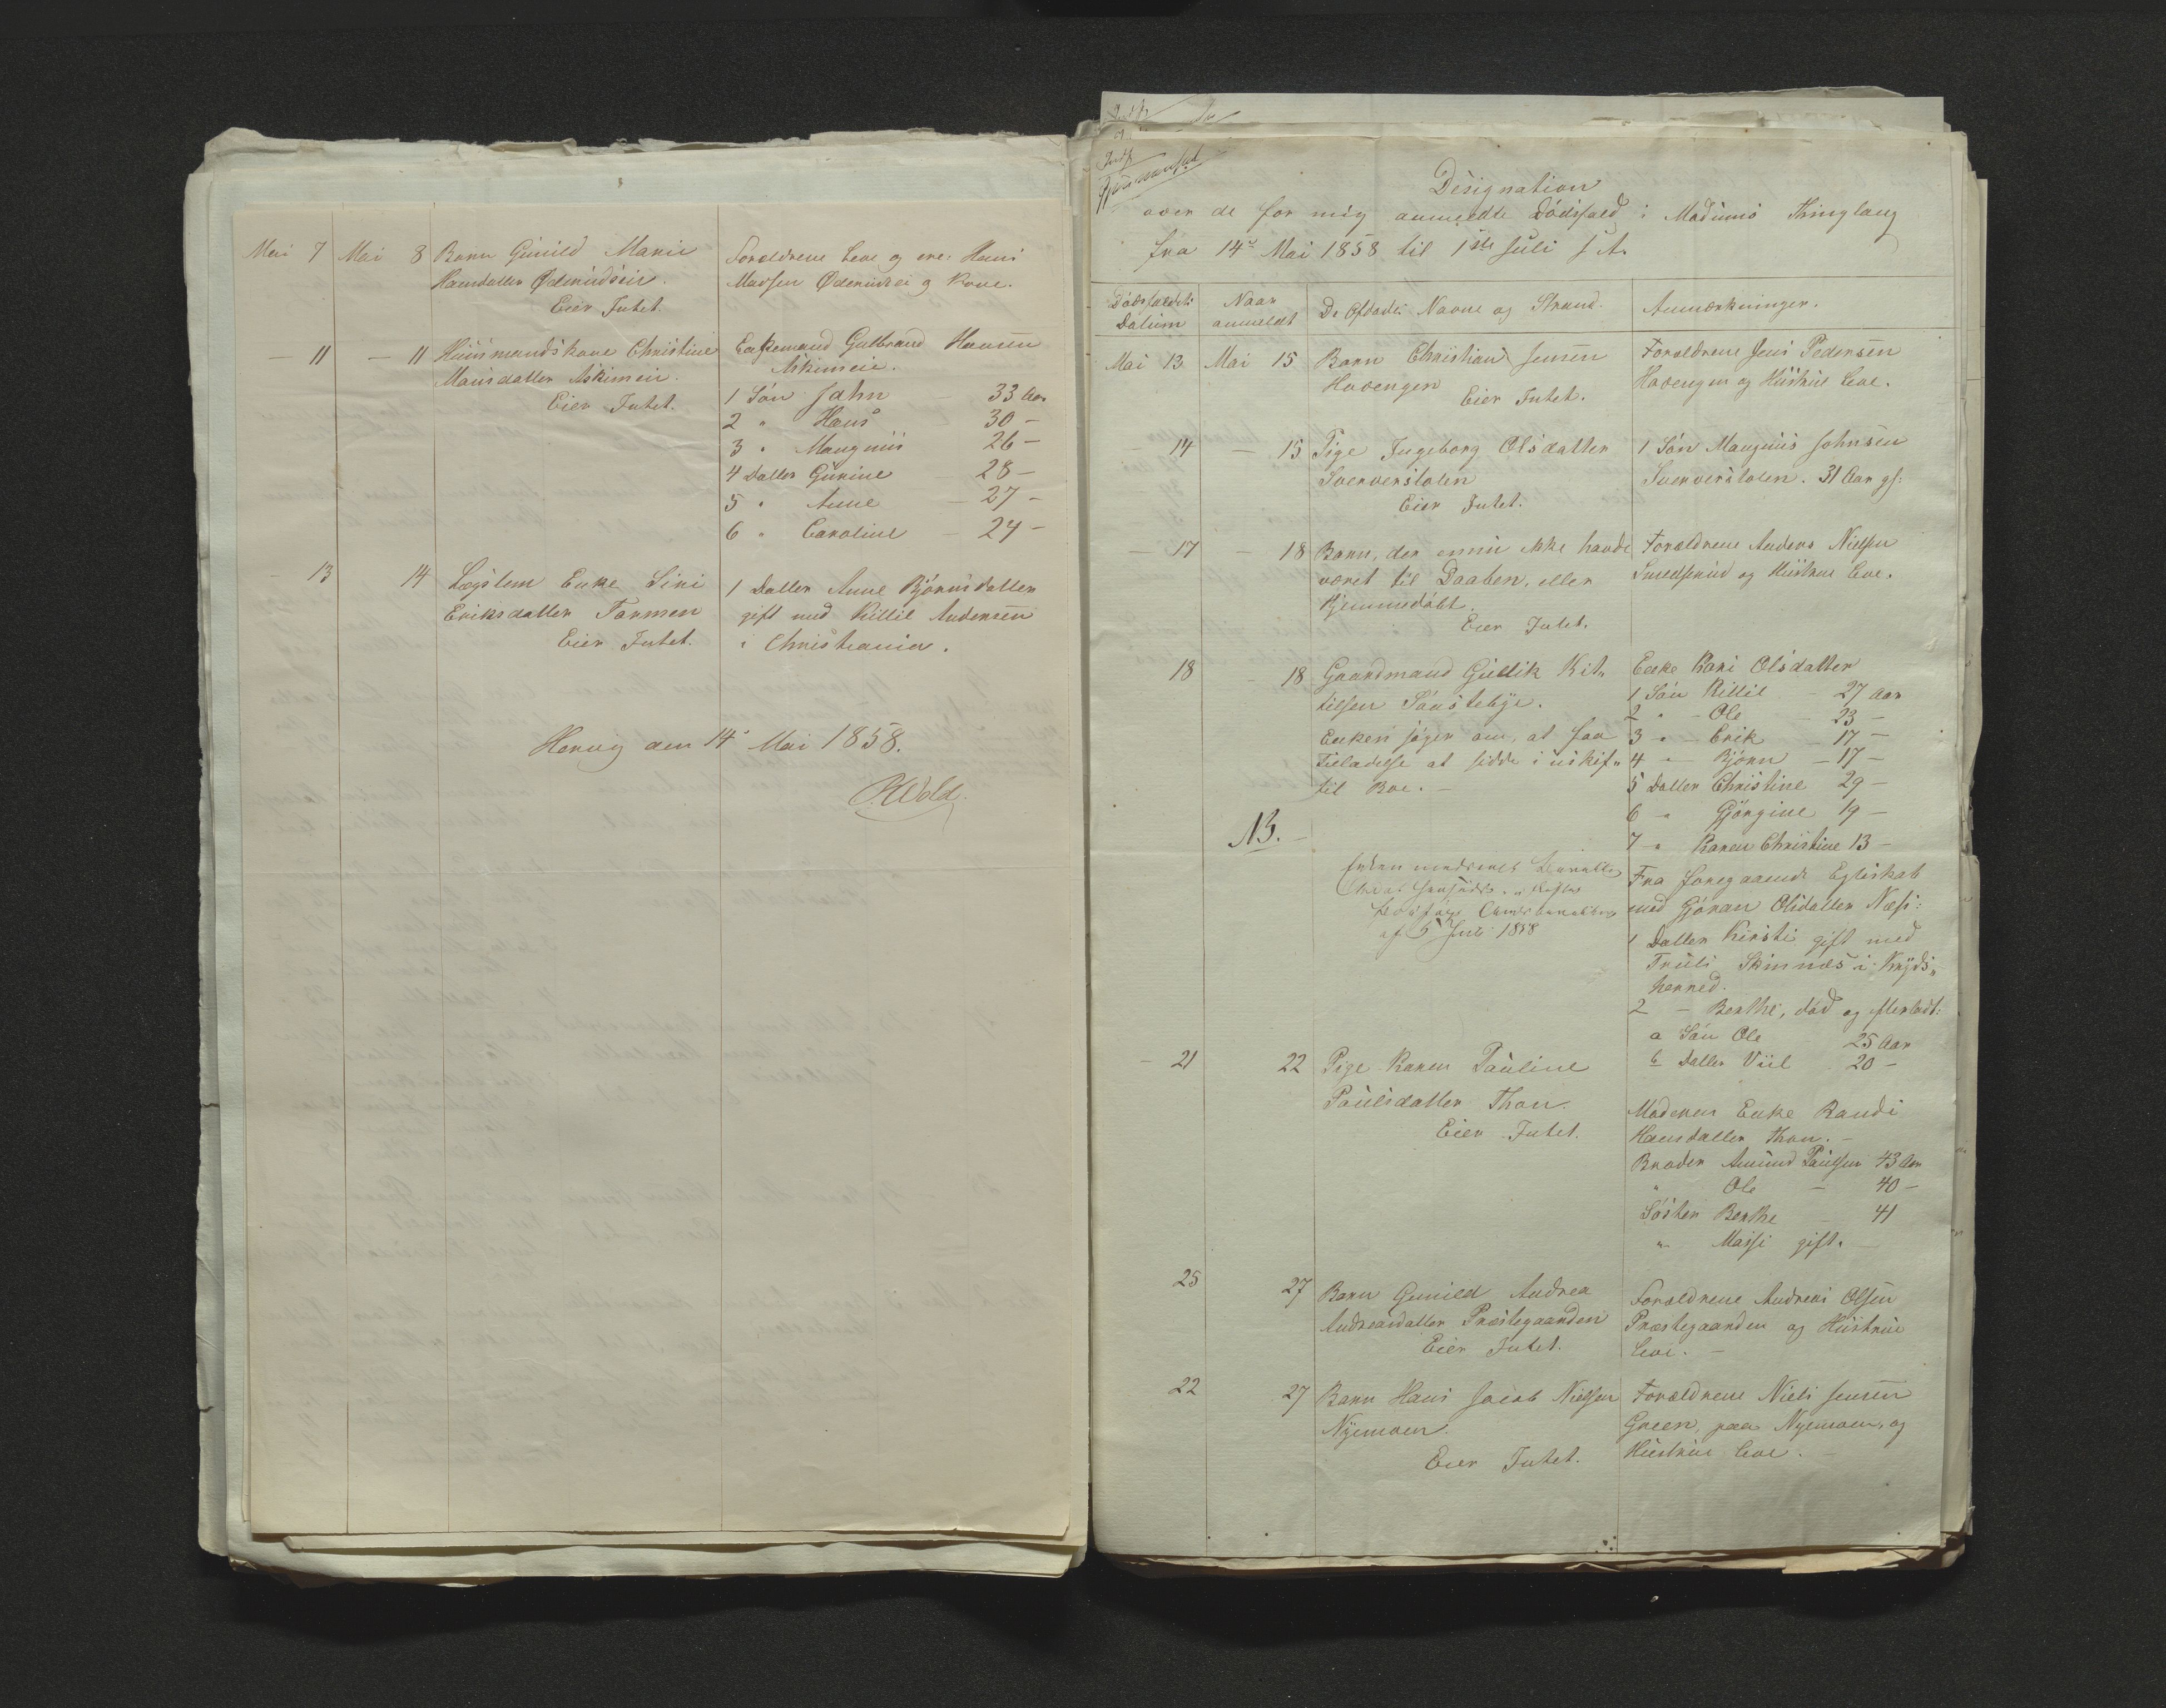 Mai 7 Mai 8 Barn Gunild Marie
Hansdatter Ødemudseie.
Eier Intet.
Forældrene leve og ere: Hans
Madsen Ødemudsei og Kone.
— 11 — 11 Huusmandskone Christine
Mønsdatter Askimeie.
Eier Intet.
Enkemand Gulbrand Hansen
Askimeie.
1 Søn John — 33 Aar
2 " Hans 30 —
3 " Maugnus 26 —
4 Datter Gurine 28 —
5 " Anne — 27 —
6 " Caroline — 24 —
13 14 Lægslem Enke Siri
Eriksdatter Formen
Eier Intet.
1 Datter Anne Bjørnsdatter
gift med Kittil Andersen
i Christiania.
Horvig den 14de Mai 1858.
Wold
Designation
over de for mig anmeldte Dødsfald i Modums Thinglaug
fra 14de Mai 1858 til 1ste Juli s. A.
Dødsfaldets
Datum
Naar
anmeldt
De Afdødes Navne og Stand.
Anmærkninger.
Mai 13 Mai 15 Barn Christian Jensen
Hovengen
Eier Intet.
Forældrene Jens Pedersen
Hovengen og Hustrue leve.
14 — 15 Pige Ingeborg Olsdatter
Sververstolen
Eier Intet.
1 Søn Maugnus Johnsen
Sververstolen. 31 Aar gl:
— 17 — 18 Barn, der ennu ikke havde
været til Daaben, eller
hjemmedøbt.
Eier Intet.
Forældrene Anders Nielsen
Smedsrud og Hustrue leve.
18 — 18 Gaardmand Gullik Kit-
tilsen Sønsteby.
Enken søger om, at faa
Tilladelse at sidde i uskif-
til Boe. —
Enke Kari Olsdatter
1 Søn Kittil — 27 Aar
2 " — Ole — 23 —
3 " — Erik — 17 —
4 " — Bjørn — 17 —
5 Datter Christine 29 —
6 — " Gjørgine 19 —
7 — " Karen Christine 13 —
NB. —
af 5 Juli 1858
Fra foregaaende Egteskab
med Gjøran Olsdatter Næss:
1 Datter Kirsti gift med
Truls Skinnes i Kryds-
herred.
2 — Berthe, død og efterladt:
a Søn Ole 25 Aar
b Datter Viil 20 —
— 21 22 Pige Karen Pauline
Paulsdatter Thon.
Eier Intet.
Moderen Enke Randi
Hansdatter Thon. —
Broder Amund Paulsen 43 Aar
" Ole — 40 —
Søster Berthe — 41
" Massi gift. —
25 27 Barn Gunild Andrea
Andreasdatter Præstegaarden
Eier Intet.
Forældrene Andreas Olsen
Præstegaarden og Hustrue
leve. —
22 27 Barn Hans Jacob Nielsen
Nyemoen.
Eier Intet.
Forældrene Niels Jensen
Green, paa Nyemoen, og
Hustrue leve. —